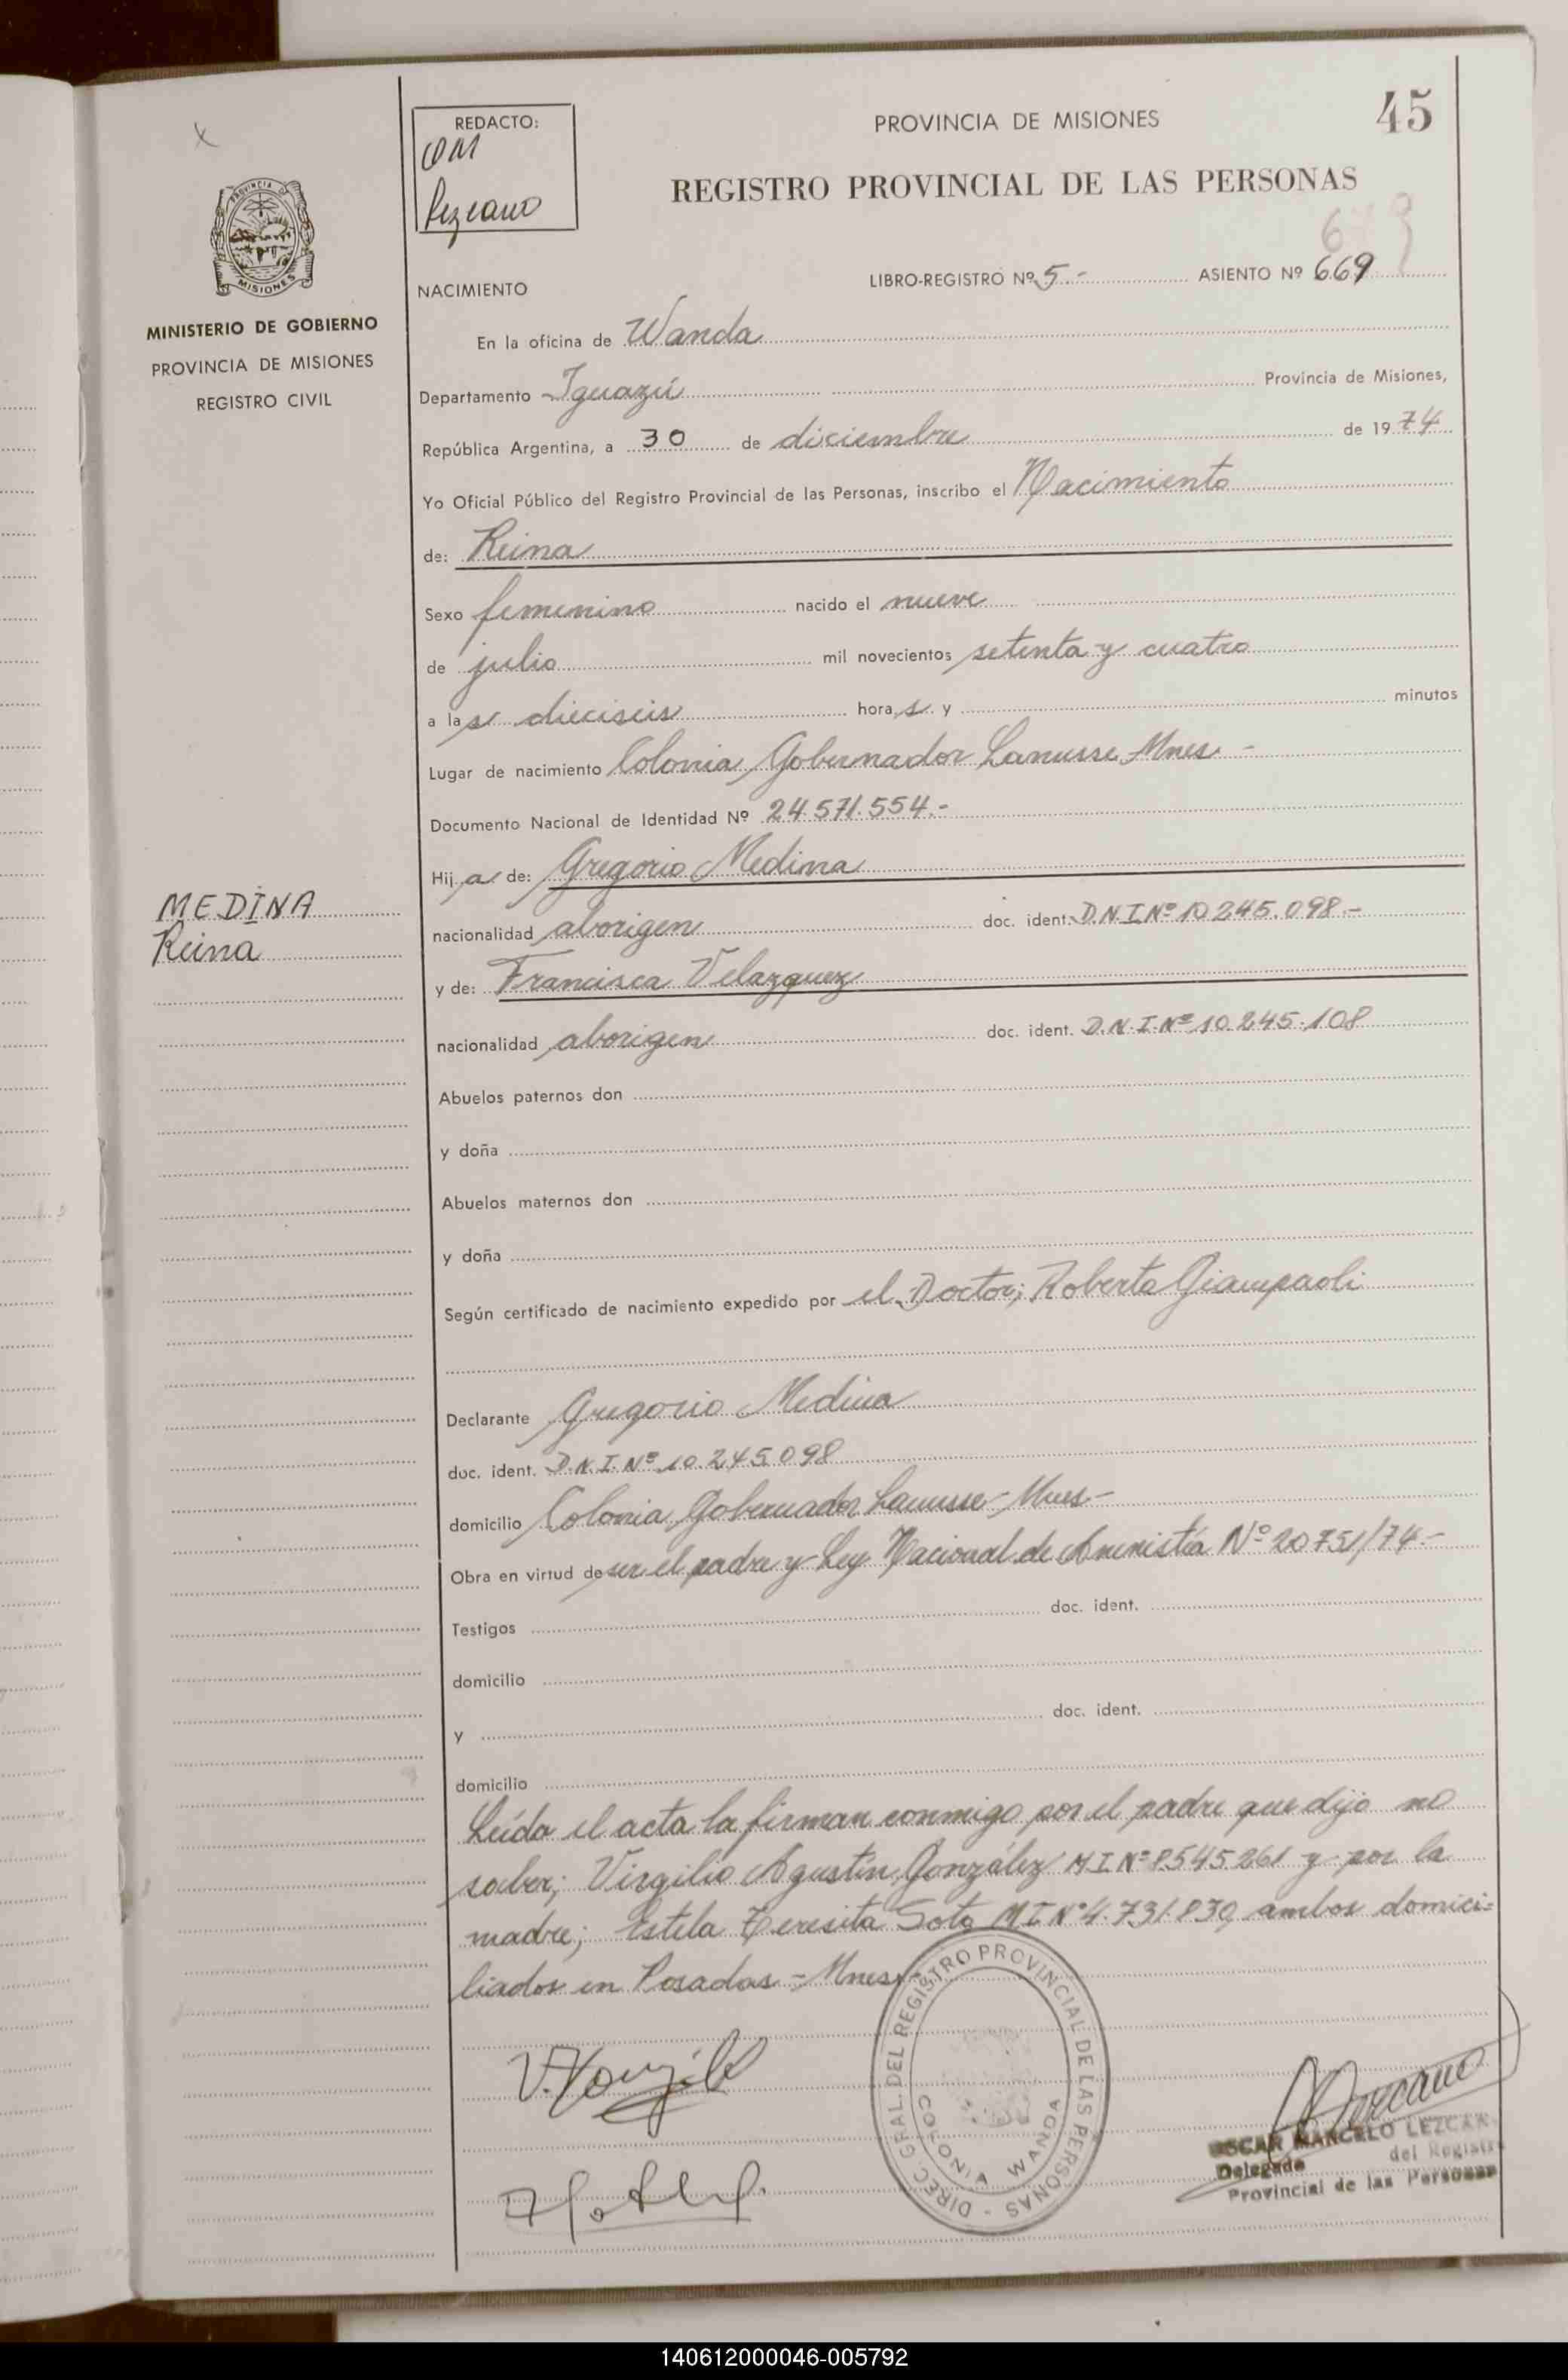 45
REDACTO:
OM
Lezcano
PROVINCIA DE MISIONES
REGISTRO PROVINCIAL DE LAS PERSONAS
PROVINCIA D
MISIONES
MINISTERIO DE GOBIERNO
PROVINCIA DE MISIONES
REGISTRO CIVIL
NACIMIENTO
LIBRO-REGISTRO Nº 5.- ASIENTO Nº 669
En la oficina de Wanda
Departamento Iguazú Provincia de Misiones,
República Argentina, a 30 de diciembre de 1974
Yo Oficial Público del Registro Provincial de las Personas, inscribo el Nacimiento
de: Reina
Sexo femenino nacido el nueve
de julio mil novecientos setenta y cuatro
a las dieciseis horas y minutos
Lugar de nacimiento Colonia Gobernador Lanusse Mnes -
Documento Nacional de Identidad Nº 24.571.554.-
Hija de: Gregorio Medina
MEDINA
Reina
nacionalidad aborigen doc. ident. D.N.I.Nº 10.245.098.-
y de: Francisca Velazquez
nacionalidad aborigen doc. ident. D.N.I.Nº 10.245.108
Abuelos paternos don
y doña
Abuelos maternos don
y doña
Según certificado de nacimiento expedido por el Doctor; Roberto Giampaoli
Declarante Gregorio Medina
doc. ident. D.N.I. Nº 10.245.098
domicilio Colonia Gobernador Lanusse - Mnes -
Obra en virtud de ser el padre y Ley Nacional de Amnistía Nº 20751/74.-
Testigos doc. ident.
domicilio
y doc. ident.
domicilio
Leída el acta la firman conmigo por el padre que dijo no
saber; Virgilio Agustín González M I Nº 8545261 y por la
madre; Estela Teresita Soto M I Nº 4.731.830 ambos domici=
liados en Posadas - Mnes.
DIREC. GRAL. DEL REGISTRO PROVINCIAL DE LAS PERSONAS -
COLONIA WANDA
OSCAR MARCELO LEZCANO
Delegado del Registro
Provincial de las Personas
140612000046-005792